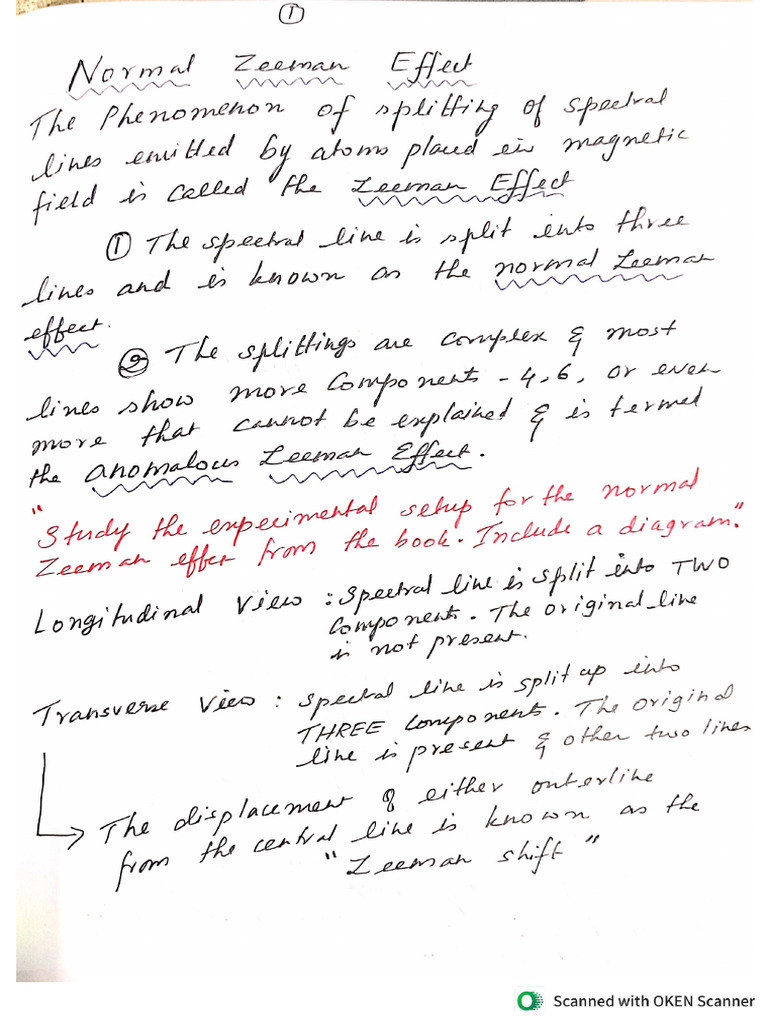 1
Normal Zeeman Effect
The Phenomenon of splitting of spectral
lines emitted by atoms placed in magnetic
field is called the Zeeman Effect
① The spectral line is split into three
lines and is known as the normal Zeeman
effect.
② The splittings are complex & most
lines show more components - 4, 6, or even
more that cannot be explained & is termed
the anomalous Zeeman Effect.
"Study the experimental setup for the normal
Zeeman effect from the book. Include a diagram."
Longitudinal View : Spectral line is split into TWO
components. The original line
is not present.
Transverse View : Spectral line is split up into
THREE components. The original
line is present & other two lines
The displacement of either outerline
from the central line is known as the
"Zeeman shift"
Scanned with OKEN Scanner